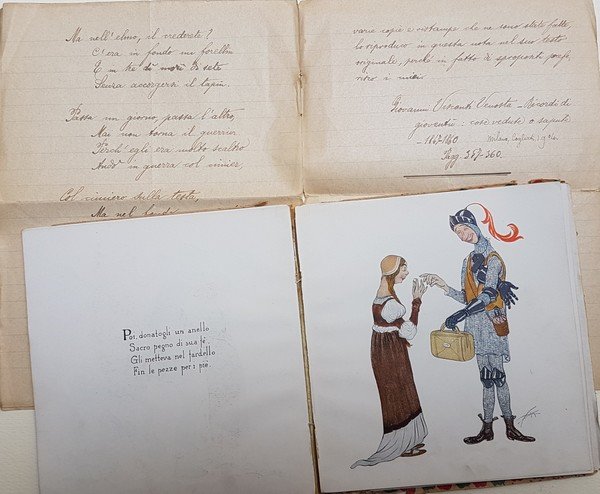 Ma nell'elmo, il crederete?
C'era in fondo un forellin
E in tre dì morì di sete
Senza accorgersi il tapin.
Passa un giorno, passa l'altro,
Mai non torna il guerrier
Perch'egli era molto scaltro
Andò in guerra col cimier.
Col cimiero sulla testa,
Ma nel
varie copie e ristampe che ne sono state fatte,
lo riproduco in questa nota nel suo testo
originale, perchè in fatto di spropositi
i miei
Giovanni Visconti Venosta - Ricordi di
gioventù: cose vedute o sapute
- 1847-1860 Milano, Cogliati
Pagg. 357-360.
Poi, donatogli un anello
Sacro pegno di sua fè,
Gli metteva nel fardello
Fin le pezze per i piè.